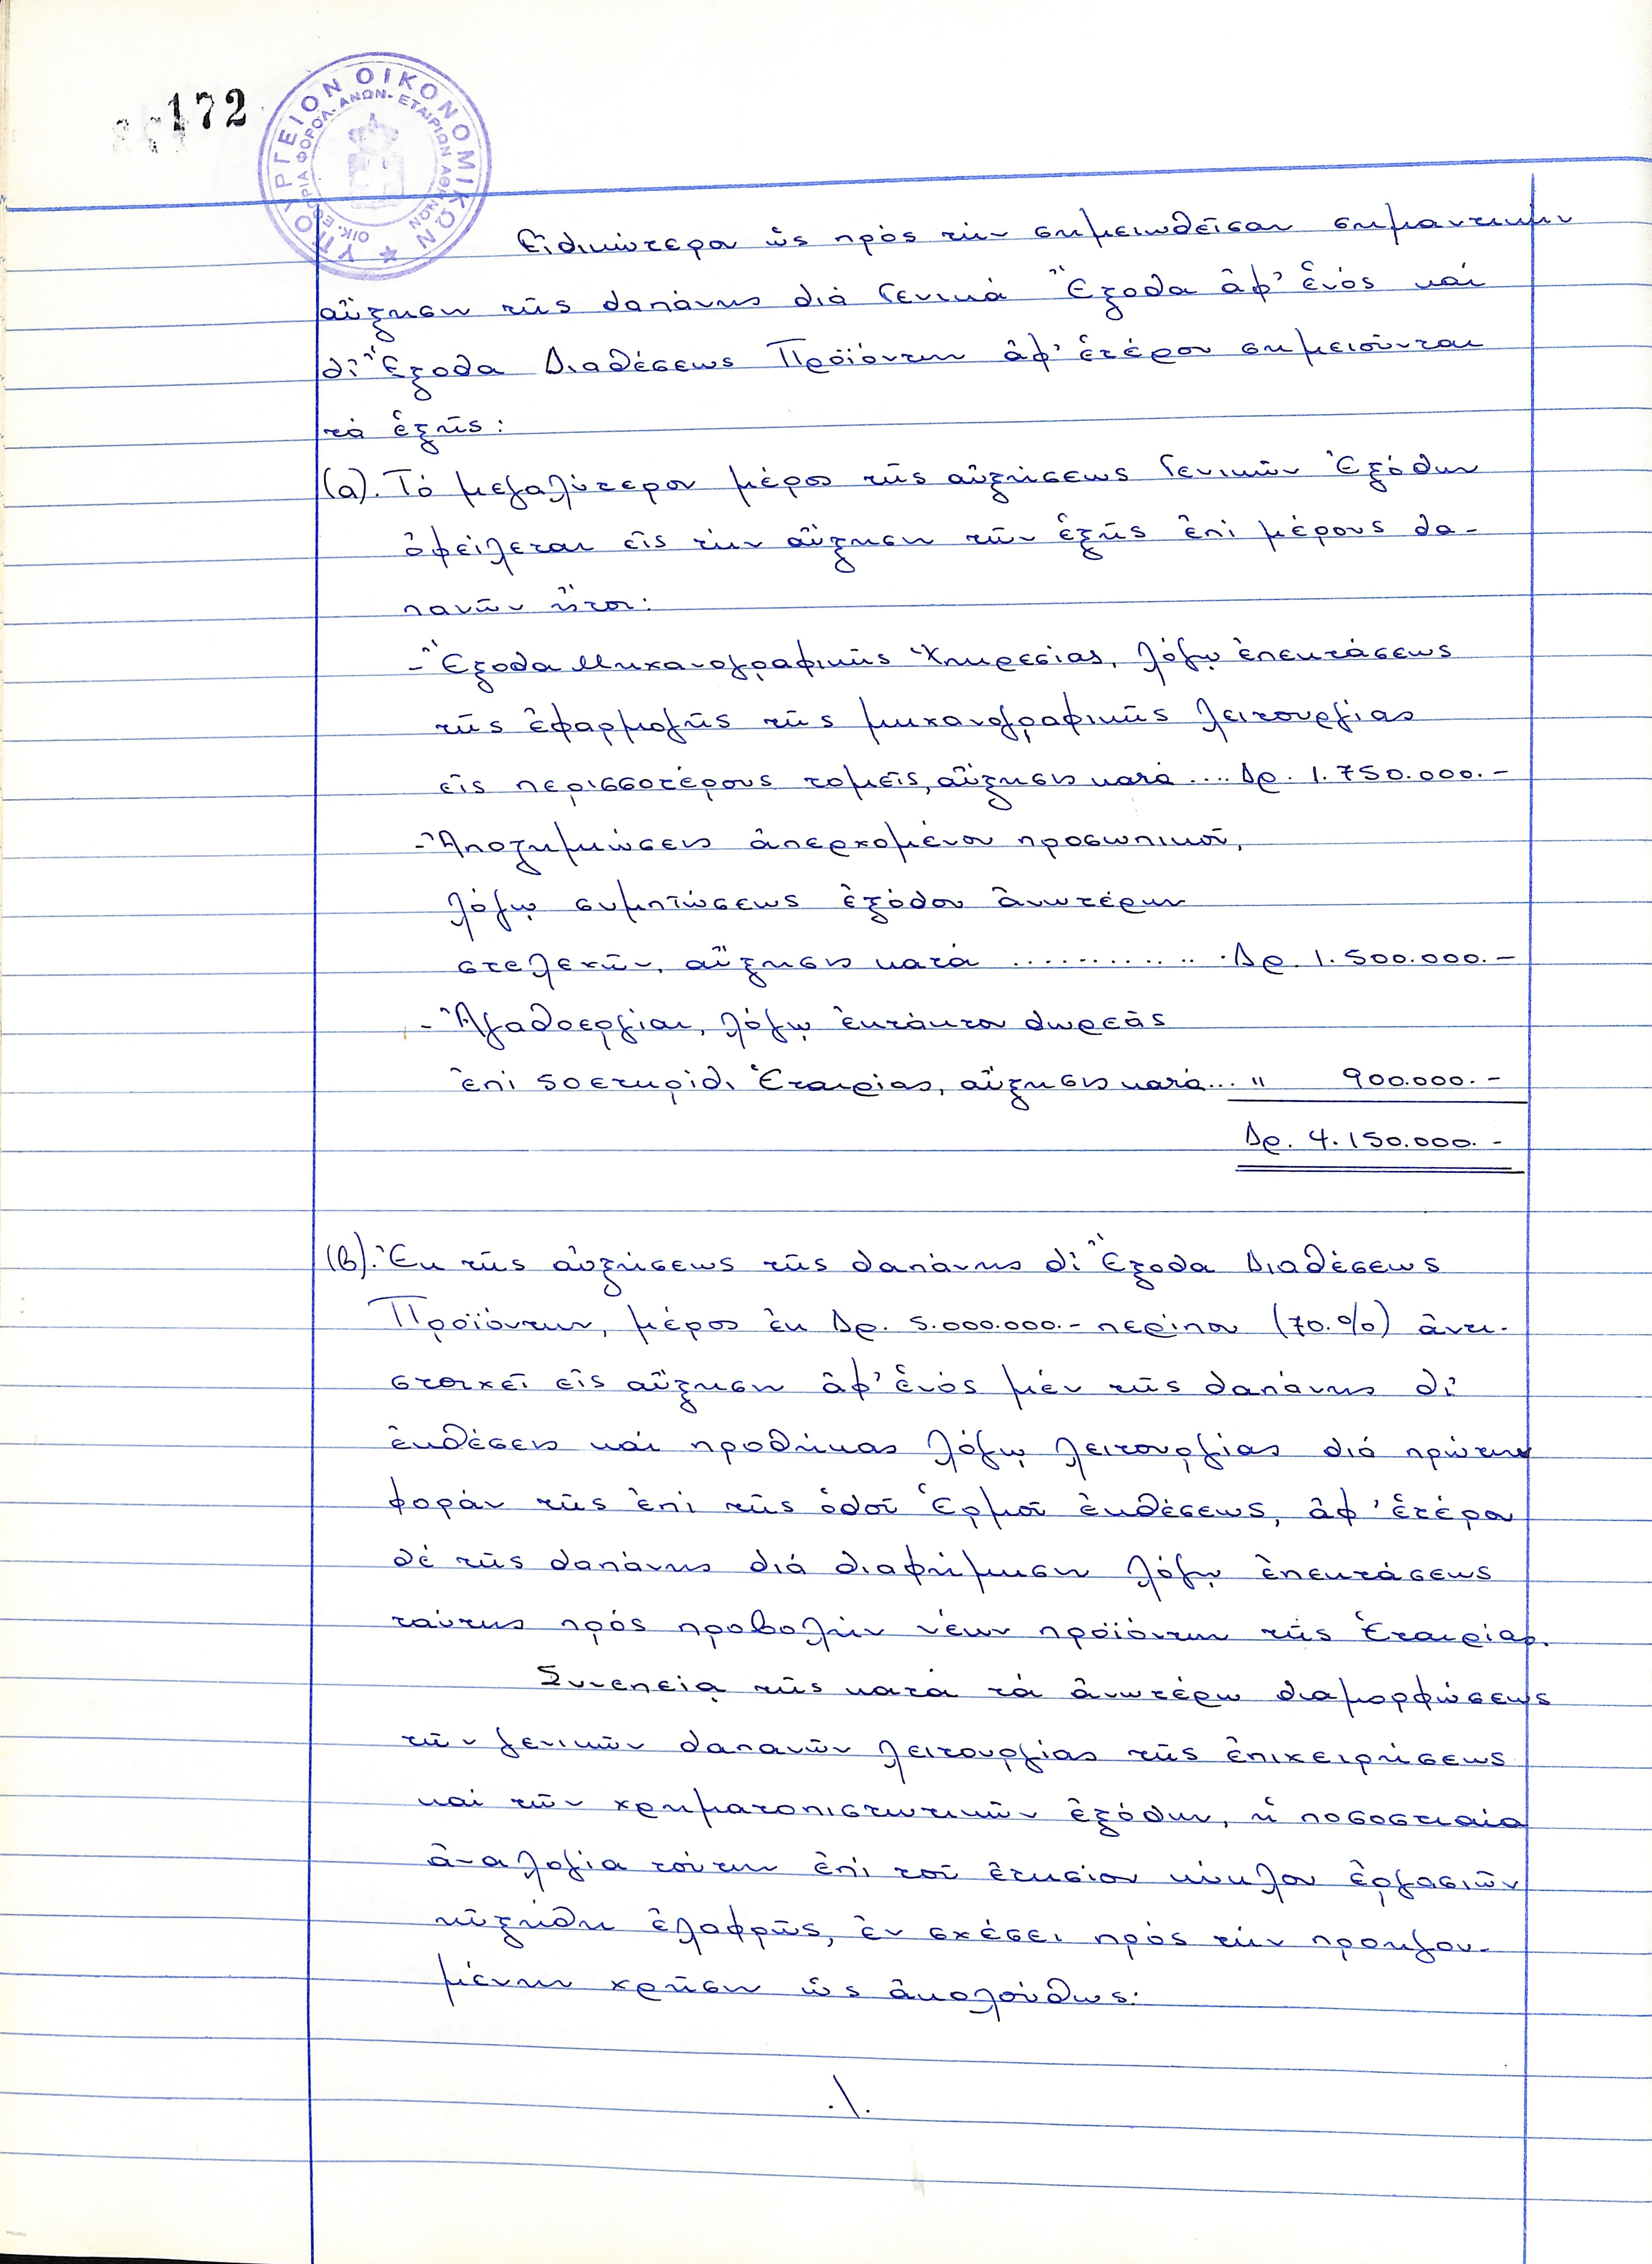 172
ΥΠΟΥΡΓΕΙΟΝ ΟΙΚΟΝΟΜΙΚΩΝ
ΟΙΚ. ΕΦΟΡΙΑ ΦΟΡΟΛ. ΑΝΩΝ. ΕΤΑΙΡΙΩΝ ΑΘΗΝΩΝ
Εἰδικώτερον ὡς πρός τήν σημειωθεῖσαν σημαντικήν
αὔξησιν τῆς δαπάνης διά Γενικά Ἔξοδα ἀφ' ἑνός καί
δι' Ἔξοδα Διαθέσεως Προϊόντων ἀφ' ἑτέρου σημειοῦνται
τά ἑξῆς:
(α). Τό μεγαλύτερον μέρος τῆς αὐξήσεως Γενικῶν Ἐξόδων
ὀφείλεται εἰς τήν αὔξησιν τῶν ἑξῆς ἐπί μέρους δα-
πανῶν ἤτοι:
- Ἔξοδα Μηχανογραφικῆς Ὑπηρεσίας, λόγῳ ἐπεκτάσεως
τῆς ἐφαρμογῆς τῆς μηχανογραφικῆς λειτουργίας
εἰς περισσοτέρους τομεῖς, αὔξησις κατά .... Δρ. 1.750.000.-
- Ἀποζημιώσεις ἀπερχομένου προσωπικοῦ,
λόγῳ συμπτώσεως ἐξόδου ἀνωτέρων
στελεχῶν, αὔξησις κατά ............. Δρ. 1.500.000.-
- Ἀγαθοεργίαι, λόγῳ ἐκτάκτου δωρεᾶς
ἐπί 50ετηρίδι Ἑταιρίας, αὔξησις κατά... " 900.000.-
Δρ. 4.150.000.-
(β). Ἐκ τῆς αὐξήσεως τῆς δαπάνης δι' Ἔξοδα Διαθέσεως
Προϊόντων, μέρος ἐκ Δρ. 5.000.000.- περίπου (70.%) ἀντι-
στοιχεῖ εἰς αὔξησιν ἀφ' ἑνός μέν τῆς δαπάνης δι'
ἐκθέσεις καί προθήκας λόγῳ λειτουργίας διά πρώτην
φοράν τῆς ἐπί τῆς ὁδοῦ Ἑρμοῦ ἐκθέσεως, ἀφ' ἑτέρου
δέ τῆς δαπάνης διά διαφήμισιν λόγῳ ἐπεκτάσεως
ταύτης πρός προβολήν νέων προϊόντων τῆς Ἑταιρίας.
Συνεπείᾳ τῆς κατά τά ἀνωτέρω διαμορφώσεως
τῶν γενικῶν δαπανῶν λειτουργίας τῆς ἐπιχειρήσεως
καί τῶν χρηματοπιστωτικῶν ἐξόδων, ἡ ποσοστιαία
ἀναλογία τούτων ἐπί τοῦ ἐτησίου κύκλου ἐργασιῶν
ηὐξήθη ἐλαφρῶς, ἐν σχέσει πρός τήν προηγου-
μένην χρῆσιν ὡς ἀκολούθως:
.\.